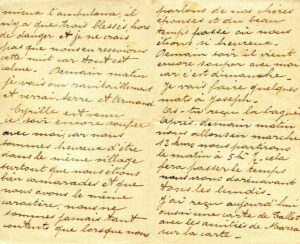 mieux l'ambulance, il
n'y a que trois blessés hors
de danger et je ne crois
pas que nous en recevions
cette nuit car tout est
calme. Demain matin
je vais au ravitaillement
et verrai Serre et Armand
est venu
ce soir encore souper
avec moi, car nous
sommes heureux d'être
dans le même village
surtout que nous étions
bien camarades et que
nous avons le même
caractère, nous ne
sommes jamais tant
contents que lorsque nous
parlons de nos chères
épouses et du beau
temps passé où nous
étions si heureux.
Demain soir il vient
encore souper avec moi
car c'est dimanche.
Je vais faire quelques
mots à Joseph.
As-tu reçu la bague
après demain matin
nous allons en marche
12 kms nous partirons
le matin à 5h ½, cela
fera passer le temps
nous en
tous les lundis.
J'ai reçu aujourd'hui
une carte de
avec les amitiés de
sur la carte.